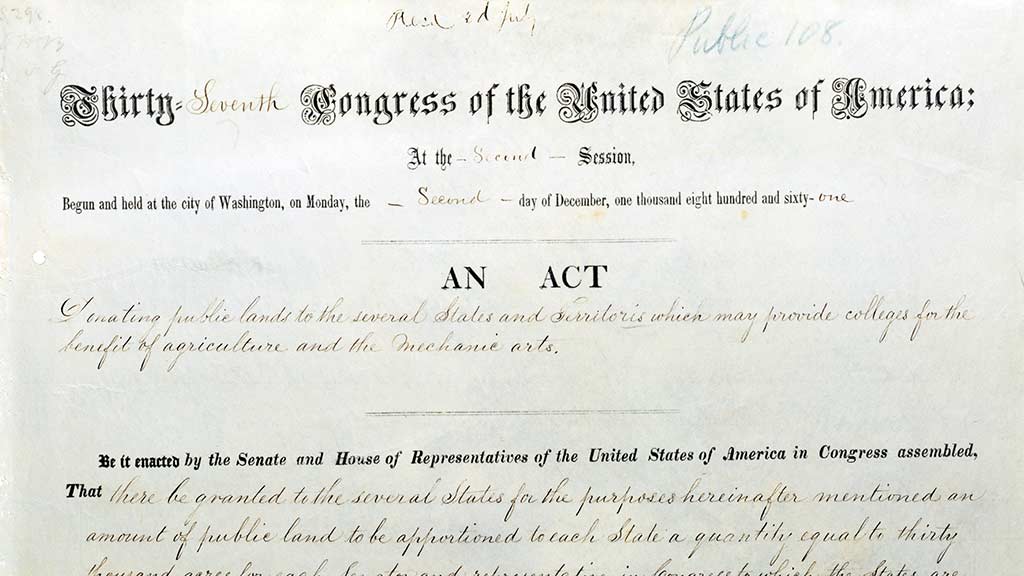 2d July
Public 108.
Thirty-Seventh Congress of the United States of America;
At the - Second - Session,
Begun and held at the city of Washington, on Monday, the - Second - day of December, one thousand eight hundred and sixty-one
AN ACT
Donating public lands to the several States and Territoris which may provide colleges for the
benefit of agriculture and the mechanic arts.
Be it enacted by the Senate and House of Representatives of the United States of America in Congress assembled,
That there be granted to the several States for the purposes hereinafter mentioned an
amount of public land to be apportioned to each State a quantity equal to thirty
thousand acres for each Senator and representative in Congress to which the States are